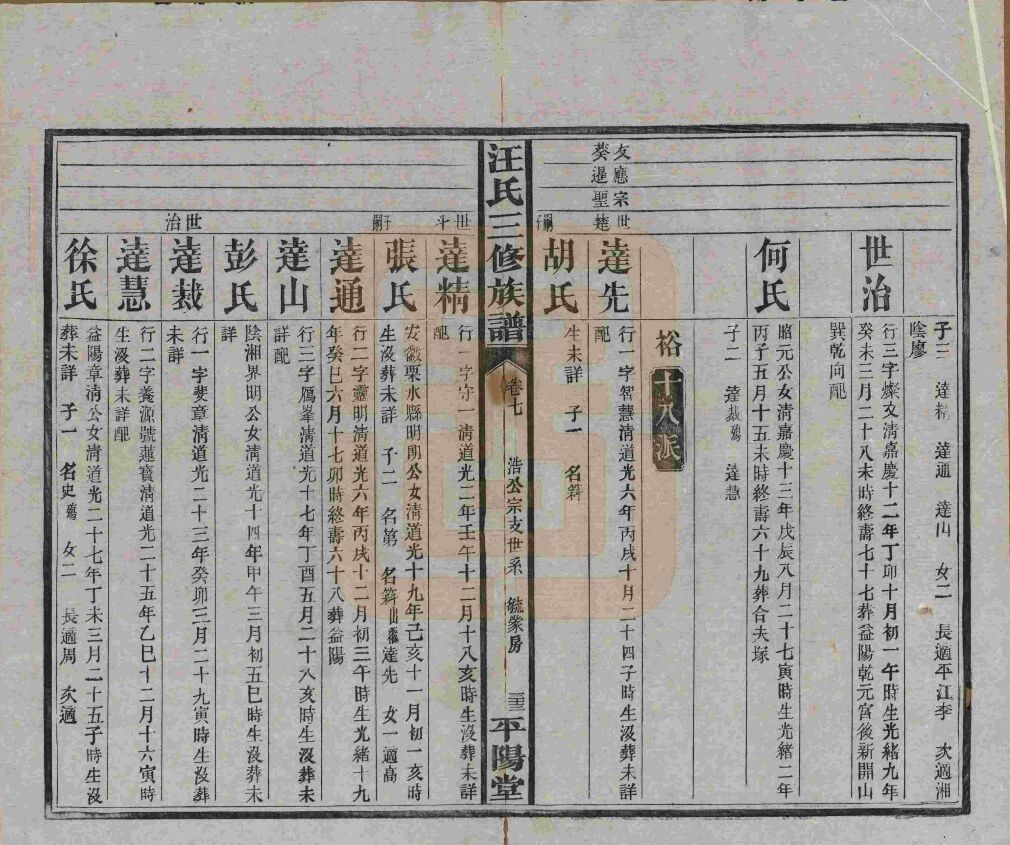 子三　達精　達通　達山　女二　長適平江李　次適湘
陰廖
世治
行三字燦文清嘉慶十二年丁卯十月初一午時生光緒九年
癸未三月二十八未時終壽七十七葬益陽乾元宮後新開山
巽乾向配
何氏
昭元公女清嘉慶十三年戊辰八月二十七寅時生光緒二年
丙子五月十五未時終壽六十九葬合夫塚
子二　達裁殤　達慧
裕十八派
友應宗世楚嗣子
葵暹聖
達先
行一字智慧清道光六年丙戌十月二十四子時生沒葬未詳
配
胡氏
生未詳　子一　名籜
汪氏三修族譜
卷七
浩公宗支世系　毓蒙房
平陽堂
世斗子嗣
達精
行一字守一清道光二年壬午十二月十八亥時生沒葬未詳
配
張氏
安徽栗水縣明朗公女清道光十九年己亥十一月初一亥時
生沒葬未詳　子二　名第　名籜出繼達先　女一適高
達通
行二字靈明清道光六年丙戌十二月初三午時生光緒十九
年癸巳六月十七卯時終壽六十八葬益陽
達山
行三字鴈峯清道光十七年丁酉五月二十八亥時生沒葬未
詳配
彭氏
陰湘界明公女清道光十四年甲午三月初五巳時生沒葬未
詳
世治
達裁
行一字斐章清道光二十三年癸卯三月二十九寅時生沒葬
未詳
達慧
行二字養源號蓮寶清道光二十五年乙巳十二月十六寅時
生沒葬未詳配
徐氏
益陽章清公女清道光二十七年丁未三月二十五子時生沒
葬未詳　子一　名史殤　女二　長適周　次適